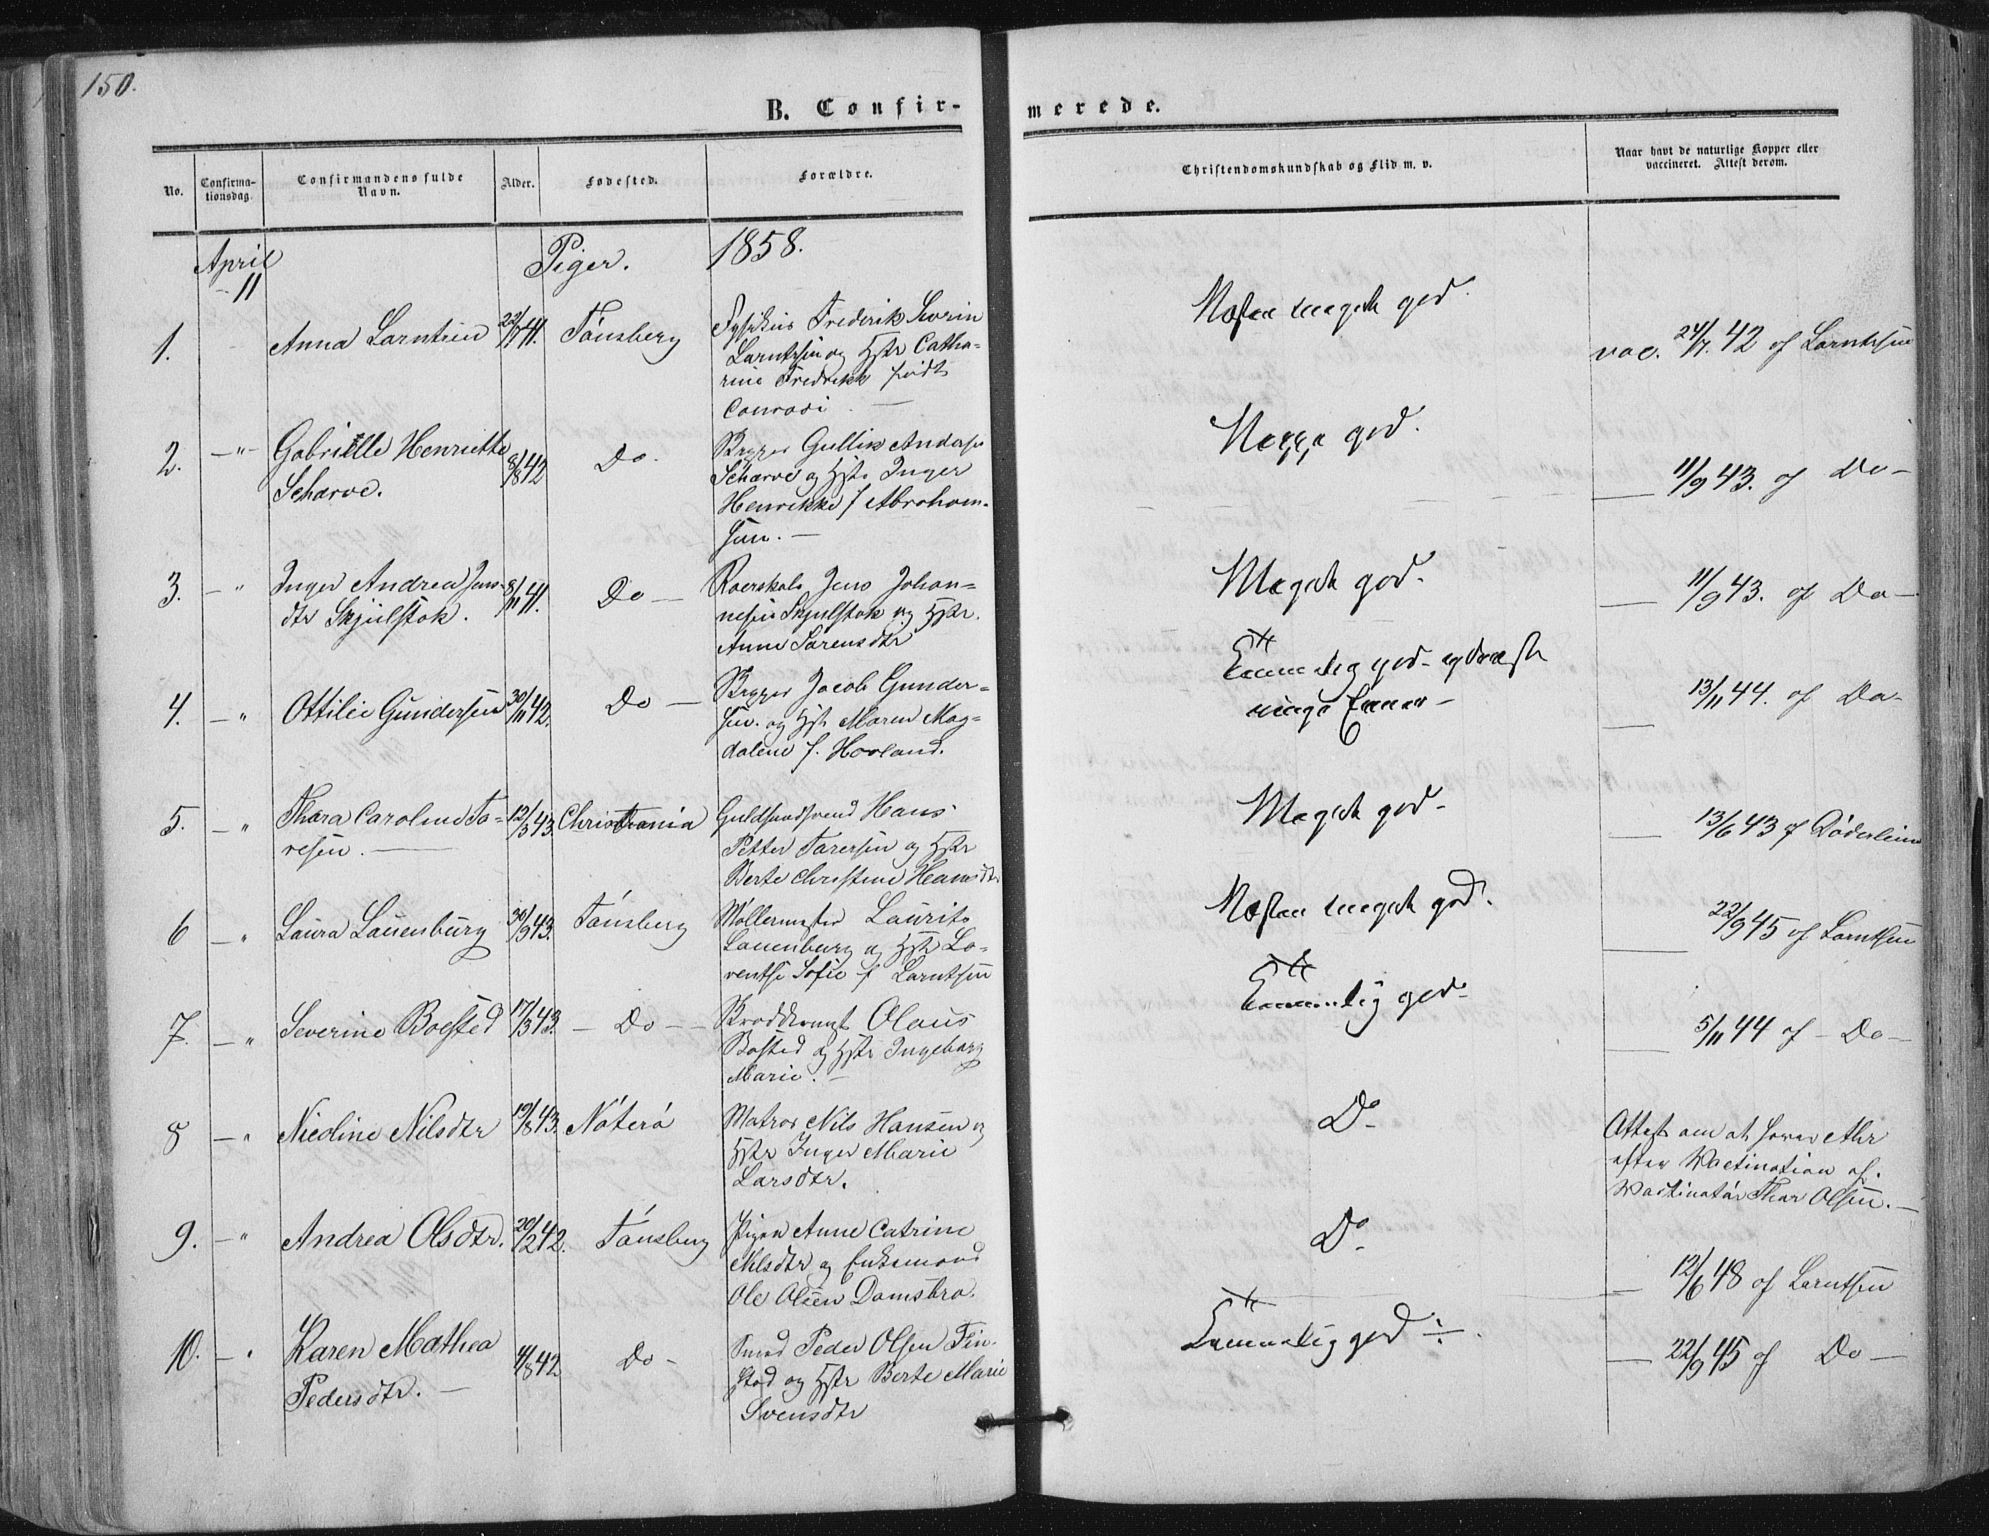 150.
B. Confir-
merede.
No.
Confirma-
tionsdag.
Confirmandens fulde
Navn.
Alder.
Fødested.
Forældre.
Christendomskundskab og Flid m. v.
Naar havt de naturlige Kopper eller
vaccineret. Attest derom.
April
11
Piger.
1858.
1.
Anna Larntsen
22/7 41.
Tónsberg
Fysikus Frederik Sevrin
Larntsen og Hstr Catha-
rine Fredrikke født
Conradi
Næsten meget god.
vac. 24/7. 42 af Larntsen
2.
-"-
Gabrielle Henriette
Scharve.
8/8 42
Do.
Skipper Gullik Anders
Scharve og Hstr Inger
Henrikke f Abraham-
sen. —
god.
— 11/9 43. af Do —
3.
- "
Inger Andrea Jens-
dtr Skjulstok.
8/11 41.
Do —
Jens Johan-
nesen Skjulstok og Hstr.
Anne Sørensdtr
Meget god.
— 11/9 43. af Do —
4.
- "
Ottilie Gundersen
30/11 42.
Do —
Skipper Jacob Gunder-
sen. og Hstr Maren Mag-
dalene f. Hovland.
Temmelig god
— 13/11 44. af Do -
5.
- "
Thara Caroline To-
resen. —
12/3 43.
Christiania
Guldsmedsvend Hans
Petter Toresen og Hstr
Berte Christine Hansdtr
Meget god -
— 13/6 43 af Döderlein
6
- "
Laura Lauenburg
30/9 43.
Tónsberg
Møllermester Laurits
Lauenburg og Hstr Lo-
rentse Sofie f Larntsen
Næsten meget god.
— 22/9 45 af Larntsen
7.
- "
Severine Boesfed
17/3 43.
- Do -
Olaus
Bosted og Hstr Ingeborg
Marie. —
Temmelig god -
— 5/11 44 af - Do -
8
- "
Nicoline Nilsdtr
19/8 43.
Nóteró
Matros Nils Hansen og
Hstr Inger Marie
Larsdtr.
Do
Attest om at have Ar
efter Vactination af
Vactinatór Thor Olsen. —
9.
- "
Andrea Olsdtr.
20/2 42.
Tónsberg
Pigen Anne Catrine
Nilsdtr og Enkemand
Ole Olsen Damsbro.
Do
— 12/6 48 af Larntsen
10.
- "
Karen Mathea
Pedersdtr. —
4/8 42
Do -
Smed Peder Olsen Fin-
stad og Hstr Berte Marie
Svensdtr
Temmelig god ÷.
— 22/9 45 af Do —